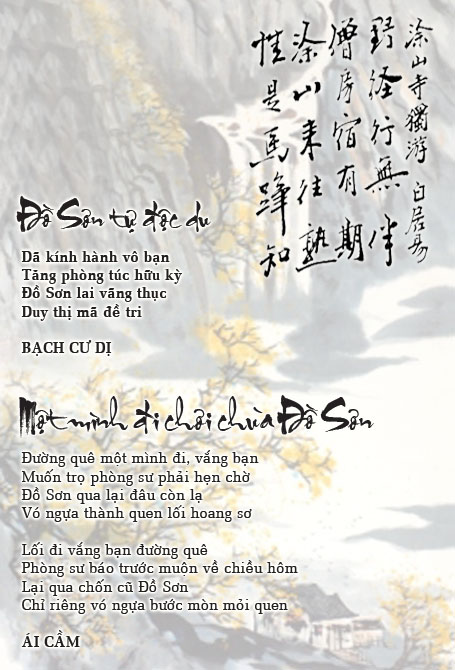 涂山寺獨游 白居易
野径行無伴
僧房宿有期
涂山来往熟
惟是馬蹄知
Đồ Sơn tự độc du
Dã kính hành vô bạn
Tăng phòng túc hữu kỳ
Đồ Sơn lai vãng thục
Duy thị mã đề tri
BẠCH CƯ DỊ
Một mình đi chơi chùa Đồ Sơn
Đường quê một mình đi, vắng bạn
Muốn trọ phòng sư phải hẹn chờ
Đồ Sơn qua lại đâu còn lạ
Vó ngựa thành quen lối hoang sơ
Lối đi vắng bạn đường quê
Phòng sư báo trước muộn về chiều hôm
Lại qua chốn cũ Đồ Sơn
Chỉ riêng vó ngựa bước mòn mỏi quen
ÁI CẦM